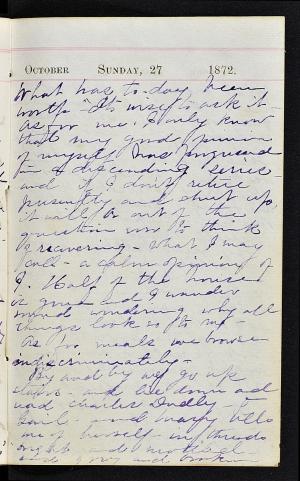 October Sunday, 27 1872.
What has to-day been
worth - It's wise to ask it -
as for me, I only know
that my good opinion
of myself has progressed
in a descending series
and if I don't retire
presently and shut up,
it will be out of the
question ever to think
of recovering - what I may
call - a calm opinion of
I. Half of the house
is gone and I wander
round wondering why all
things look so to me -
As for meals we browse
indiscriminately -
By and by we go up
stairs - and lie down and
read Charles Dudley
and Mary tells
me of herself - in threads
bright and
and grey and broken